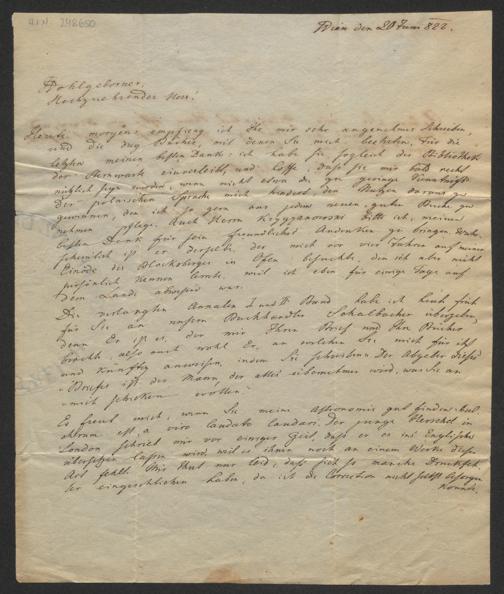 H.I.N. 248650
Wien den 20 Juni 822.
Wohlgeborner,
Hochzuehrender Herr!
Heute morgens empfing ich Ihr mir sehr angenehmes Schreiben,
und die Bücher, mit denen Sie mich Für die
letzten meinen besten Dank: ich habe sie sogleich der Bibliothek
der Sternwarte einverleibt, und hoffe, daß sie mir bald recht
nützlich seyn werden, wenn mich nicht etwa die zu geringe
der polnischen Sprache mich hindert, den Nutzen daraus zu
gewinnen, den ich so gern aus jedem neuen guten Buche zu
nehmen pflege. Auch Herrn bitte ich, meinen
besten Dank für sein freundliches Andenken zu bringen.
ist er derselbe, der mich vor vier Jahren auf meiner
Einöde des Blocksberges in Ofen besuchte, den ich aber nicht
persönlich kennen lernte, weil ich eben für einige Tage auf
dem Lande abwesend war.
Die verlangten Annalen I und II Band habe ich heut früh
für Sie an unsern Buchhändler Schalbacher übergeben,
denn Er ist es, der mir Ihren Brief und Ihre Bücher
brachte, also auch wohl Er, an welchen Sie mich für itzt
und künftig anweisen, indem Sie schreiben: Der Abgeber dieses
Briefes ist der Mann, der alles übernehmen wird, was Sie an
mich schicken wollen.
Es freut mich, wenn Sie meine Astronomie gut finden:
est, a viro laudato laudari. Der junge Herschel in
London schrieb mir vor einiger Zeit, daß er es ins Englische
übersetzen lassen wird, weil es ihnen noch an einem Werke dieser
Art fehlt. Mir thut nur leid, daß sich so manche Druckfeh-
ler eingeschlichen haben, da ich die Correction nicht selbst besorgen
konnte.